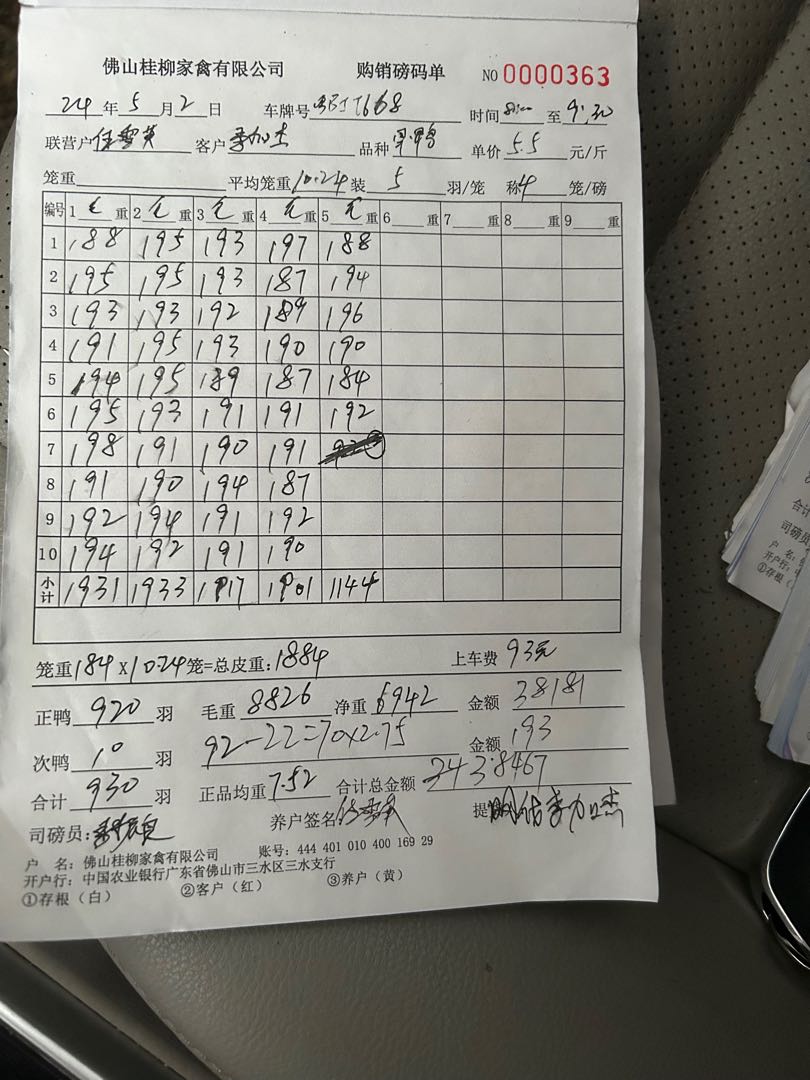 佛山桂柳家禽有限公司 购销磅码单 NO 0000363
24 年 5 月 2 日 车牌号 时间 至 9:30
联营户 客户 李加杰 品种 单价 5.5 元/斤
笼重 平均笼重 10.24 装 5 羽/笼 称 4 笼/磅
编号 1 毛 重 2 毛 重 3 毛 重 4 毛 重 5 毛 重 6 重 7 重 8 重 9 重
1 188 195 193 197 188
2 195 195 193 187 194
3 193 193 192 189 196
4 191 195 193 190 190
5 194 195 189 187 184
6 195 193 191 191 192
7 198 191 190 191
8 191 190 194 187
9 192 194 191 192
10 194 192 191 190
小计 1931 1933 1917 1901 1144
笼重 184 X 10.24 笼=总皮重: 1884 上车费 93元
正鸭 920 羽 毛重 8826 净重 6942 金额 38181
次鸭 10 羽 92-22=70x2.75 金额 193
合计 930 羽 正品均重 7.52 合计总金额 38467
司磅员: 养户签名 提
户 名: 佛山桂柳家禽有限公司 账号: 444 401 010 400 169 29
开户行: 中国农业银行广东省佛山市三水区三水支行
①存根(白) ②客户(红) ③养户(黄)
合计
司磅员
户 名:
开户行:
①存根(